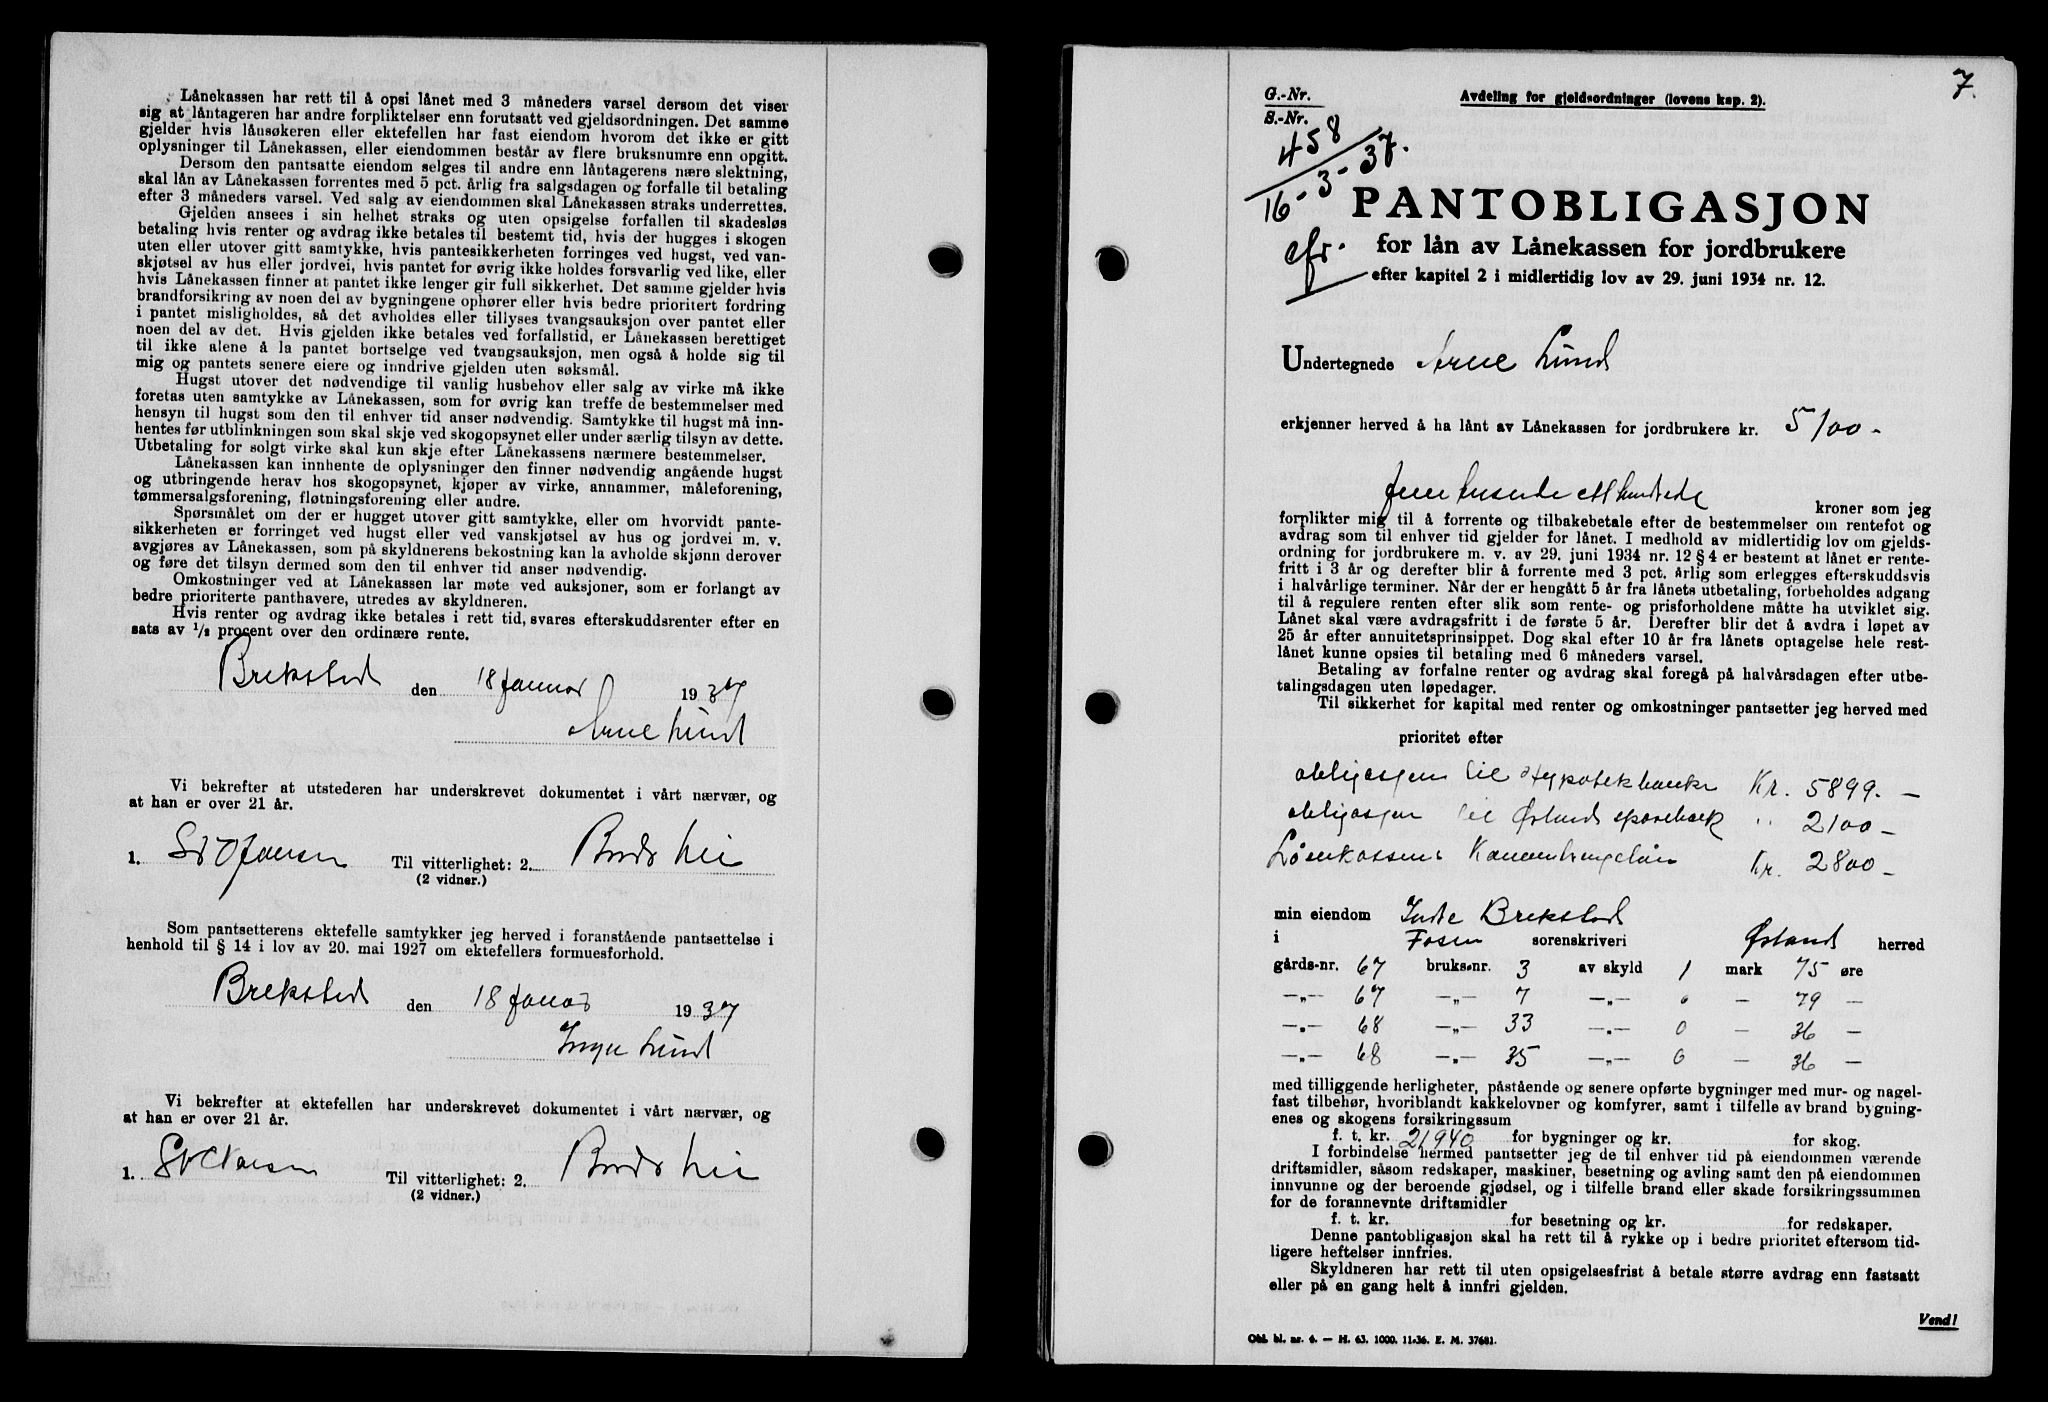 Lånekassen har rett til å opsi lånet med 3 måneders varsel dersom det viser
sig at låntageren har andre forpliktelser enn forutsatt ved gjeldsordningen. Det samme
gjelder hvis lånsøkeren eller ektefellen har fast eiendom hvorom det ikke er gitt
oplysninger til Lånekassen, eller eiendommen består av flere bruksnumre enn opgitt.
Dersom den pantsatte eiendom selges til andre enn låntagerens nære slektning,
skal lån av Lånekassen forrentes med 5 pct. årlig fra salgsdagen og forfalle til betaling
efter 3 måneders varsel. Ved salg av eiendommen skal Lånekassen straks underrettes.
Gjelden ansees i sin helhet straks og uten opsigelse forfallen til skadesløs
betaling hvis renter og avdrag ikke betales til bestemt tid, hvis der hugges i skogen
uten eller utover gitt samtykke, hvis pantesikkerheten forringes ved hugst, ved van-
skjøtsel av hus eller jordvei, hvis pantet for øvrig ikke holdes forsvarlig ved like, eller
hvis Lånekassen finner at pantet ikke lenger gir full sikkerhet. Det samme gjelder hvis
brandforsikring av noen del av bygningene ophører eller hvis bedre prioritert fordring
i pantet misligholdes, så det avholdes eller tillyses tvangsauksjon over pantet eller
noen del av det. Hvis gjelden ikke betales ved forfallstid, er Lånekassen berettiget
til ikke alene å la pantet bortselge ved tvangsauksjon, men også å holde sig til
mig og pantets senere eiere og inndrive gjelden uten søksmål.
Hugst utover det nødvendige til vanlig husbehov eller salg av virke må ikke
foretas uten samtykke av Lånekassen, som for øvrig kan treffe de bestemmelser med
hensyn til hugst som den til enhver tid anser nødvendig. Samtykke til hugst må inn-
hentes før utblinkningen som skal skje ved skogopsynet eller under særlig tilsyn av dette.
Utbetaling for solgt virke skal kun skje efter Lånekassens nærmere bestemmelser.
Lånekassen kan innhente de oplysninger den finner nødvendig angående hugst
og utbringende herav hos skogopsynet, kjøper av virke, annammer, måleforening,
tømmersalgsforening, fløtningsforening eller andre.
Spørsmålet om der er hugget utover gitt samtykke, eller om hvorvidt pante-
sikkerheten er forringet ved hugst eller ved vanskjøtsel av hus og jordvei m. v.
avgjøres av Lånekassen, som på skyldnerens bekostning kan la avholde skjønn derover
og føre det tilsyn dermed som den til enhver tid anser nødvendig.
Omkostninger ved at Lånekassen lar møte ved auksjoner, som er forlangt av
bedre prioriterte panthavere, utredes av skyldneren.
Hvis renter og avdrag ikke betales i rett tid, svares efterskuddsrenter efter en
sats av 1/2 procent over den ordinære rente.
Brekstad den 18 Januar 1937
Arne Lund
Vi bekrefter at utstederen har underskrevet dokumentet i vårt nærvær, og
at han er over 21 år.
1. Til vitterlighet: 2.
(2 vidner.)
Som pantsetterens ektefelle samtykker jeg herved i foranstående pantsettelse i
henhold til § 14 i lov av 20. mai 1927 om ektefellers formuesforhold.
Brekstad den 18 Januar 1937
Lund
Vi bekrefter at ektefellen har underskrevet dokumentet i vårt nærvær, og
at han er over 21 år.
1. Til vitterlighet: 2.
(2 vidner.)
7.
G.-Nr.
S.-Nr.
Avdeling for gjeldsordninger (lovens kap. 2).
458
16-3-37.
cfr.
PANTOBLIGASJON
for lån av Lånekassen for jordbrukere
efter kapitel 2 i midlertidig lov av 29. juni 1934 nr. 12.
Undertegnede Arne Lund
erkjenner herved å ha lånt av Lånekassen for jordbrukere kr. 5100.-
fem tusende etthundrede kroner som jeg
forplikter mig til å forrente og tilbakebetale efter de bestemmelser om rentefot og
avdrag som til enhver tid gjelder for lånet. I medhold av midlertidig lov om gjelds-
ordning for jordbrukere m. v. av 29. juni 1934 nr. 12 § 4 er bestemt at lånet er rente-
fritt i 3 år og derefter blir å forrente med 3 pct. årlig som erlegges efterskuddsvis
i halvårlige terminer. Når der er hengått 5 år fra lånets utbetaling, forbeholdes adgang
til å regulere renten efter slik som rente- og prisforholdene måtte ha utviklet sig.
Lånet skal være avdragsfritt i de første 5 år. Derefter blir det å avdra i løpet av
25 år efter annuitetsprinsippet. Dog skal efter 10 år fra lånets optagelse hele rest-
lånet kunne opsies til betaling med 6 måneders varsel.
Betaling av forfalne renter og avdrag skal foregå på halvårsdagen efter utbe-
talingsdagen uten løpedager.
Til sikkerhet for kapital med renter og omkostninger pantsetter jeg herved med
prioritet efter
obligasjon til Hypotekbanken Kr. 5899.-
obligasjon til Ørland sparebank " 2100-
Lånekassens Kr. 2800-
min eiendom Indre Brekstad
i Fosen sorenskriveri Ørland herred
gårds-nr. 67 bruks-nr. 3 av skyld 1 mark 75 øre
-„- 67 -„- 7 -„- 0 - 79 -
-„- 68 -„- 33 -„- 0 - 36 -
-„- 68 -„- 35 -„- 0 - 36 -
med tilliggende herligheter, påstående og senere opførte bygninger med mur- og nagel-
fast tilbehør, hvoriblandt kakkelovner og komfyrer, samt i tilfelle av brand bygning-
enes og skogens forsikringssum
f. t. kr. 21940 for bygninger og kr. for skog.
I forbindelse hermed pantsetter jeg de til enhver tid på eiendommen værende
driftsmidler, såsom redskaper, maskiner, besetning og avling samt den på eiendommen
innvunne og der beroende gjødsel, og i tilfelle brand eller skade forsikringssummen
for de forannevnte driftsmidler
f. t. kr. for besetning og kr. for redskaper.
Denne pantobligasjon skal ha rett til å rykke op i bedre prioritet eftersom tid-
ligere heftelser innfries.
Skyldneren har rett til uten opsigelsesfrist å betale større avdrag enn fastsatt
eller på en gang helt å innfri gjelden.
Vend!
Obl. bl. nr. 4. — H. 63. 1000. 11-36. E. M. 37681.